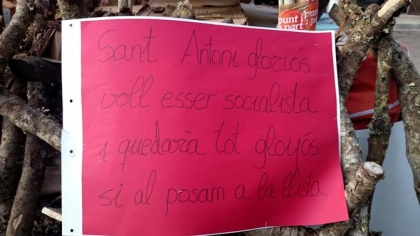 Sant Antoni gloriós
voll esser socialista
i quedarà tot gloyós
si al posam a la llista
punt i
apart